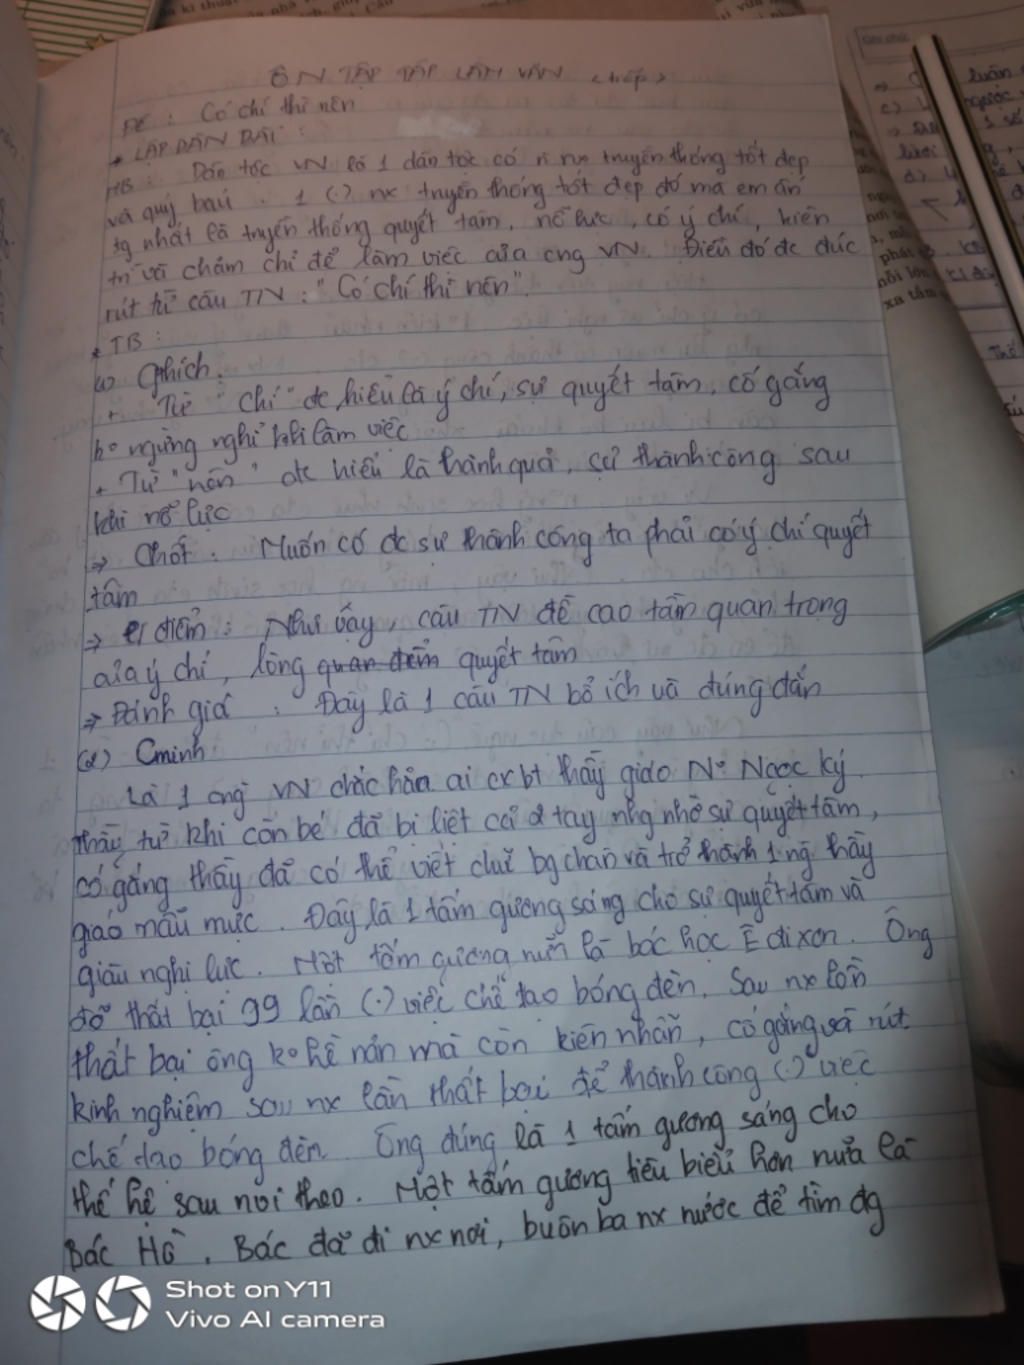 ÔN TẬP TẬP LÀM VĂN (tiếp)
ĐỀ : Có chí thì nên
* LẬP DÀN BÀI :
MB : Dân tộc VN là 1 dân tộc có truyền thống tốt đẹp
và quý báu . 1 (.) nx truyền thống tốt đẹp đó mà em ấn
tg nhất là truyền thống quyết tâm, nỗ lực, có ý chí, kiên
trì và chăm chỉ để làm việc của cng VN. Điều đó đc đúc
rút từ câu TN : "Có chí thì nên".
* TB :
(1) Gthích.
+ Từ "chí" đc hiểu là ý chí, sự quyết tâm, cố gắng
ko ngừng nghỉ khi làm việc
+ Từ "nên" đc hiểu là thành quả, sự thành công sau
khi nỗ lực
=> Chốt : Muốn có đc sự thành công ta phải có ý chí quyết
tâm
=> điểm : Như vậy, câu TN đề cao tầm quan trọng
của ý chí, lòng quan điểm quyết tâm
=> Đánh giá : Đây là 1 câu TN bổ ích và đúng đắn
(2) Cminh
Là 1 cng VN chắc hẳn ai cx bt thầy giáo Ng Ngọc Ký.
Thầy từ khi còn bé đã bị liệt cả 2 tay nhg nhờ sự quyết tâm,
cố gắng thầy đã có thể viết chữ bg chân và trở thành 1 ng thầy
giáo mẫu mực. Đây là 1 tấm gương sáng cho sự quyết tâm và
giàu nghị lực. Một tấm gương nữa là bác học Ê đi xơn. Ông
đã thất bại 99 lần (.) việc chế tạo bóng đèn. Sau nx lần
thất bại ông ko hề nản mà còn kiên nhẫn, cố gắng và rút
kinh nghiệm sau nx lần thất bại để thành công (.) việc
chế tạo bóng đèn. Ông đúng là 1 tấm gương sáng cho
thế hệ sau noi theo. Một tấm gương tiêu biểu hơn nữa là
Bác Hồ. Bác đã đi nx nơi, buôn ba nx nước để tìm đg
Shot on Y11
Vivo AI camera